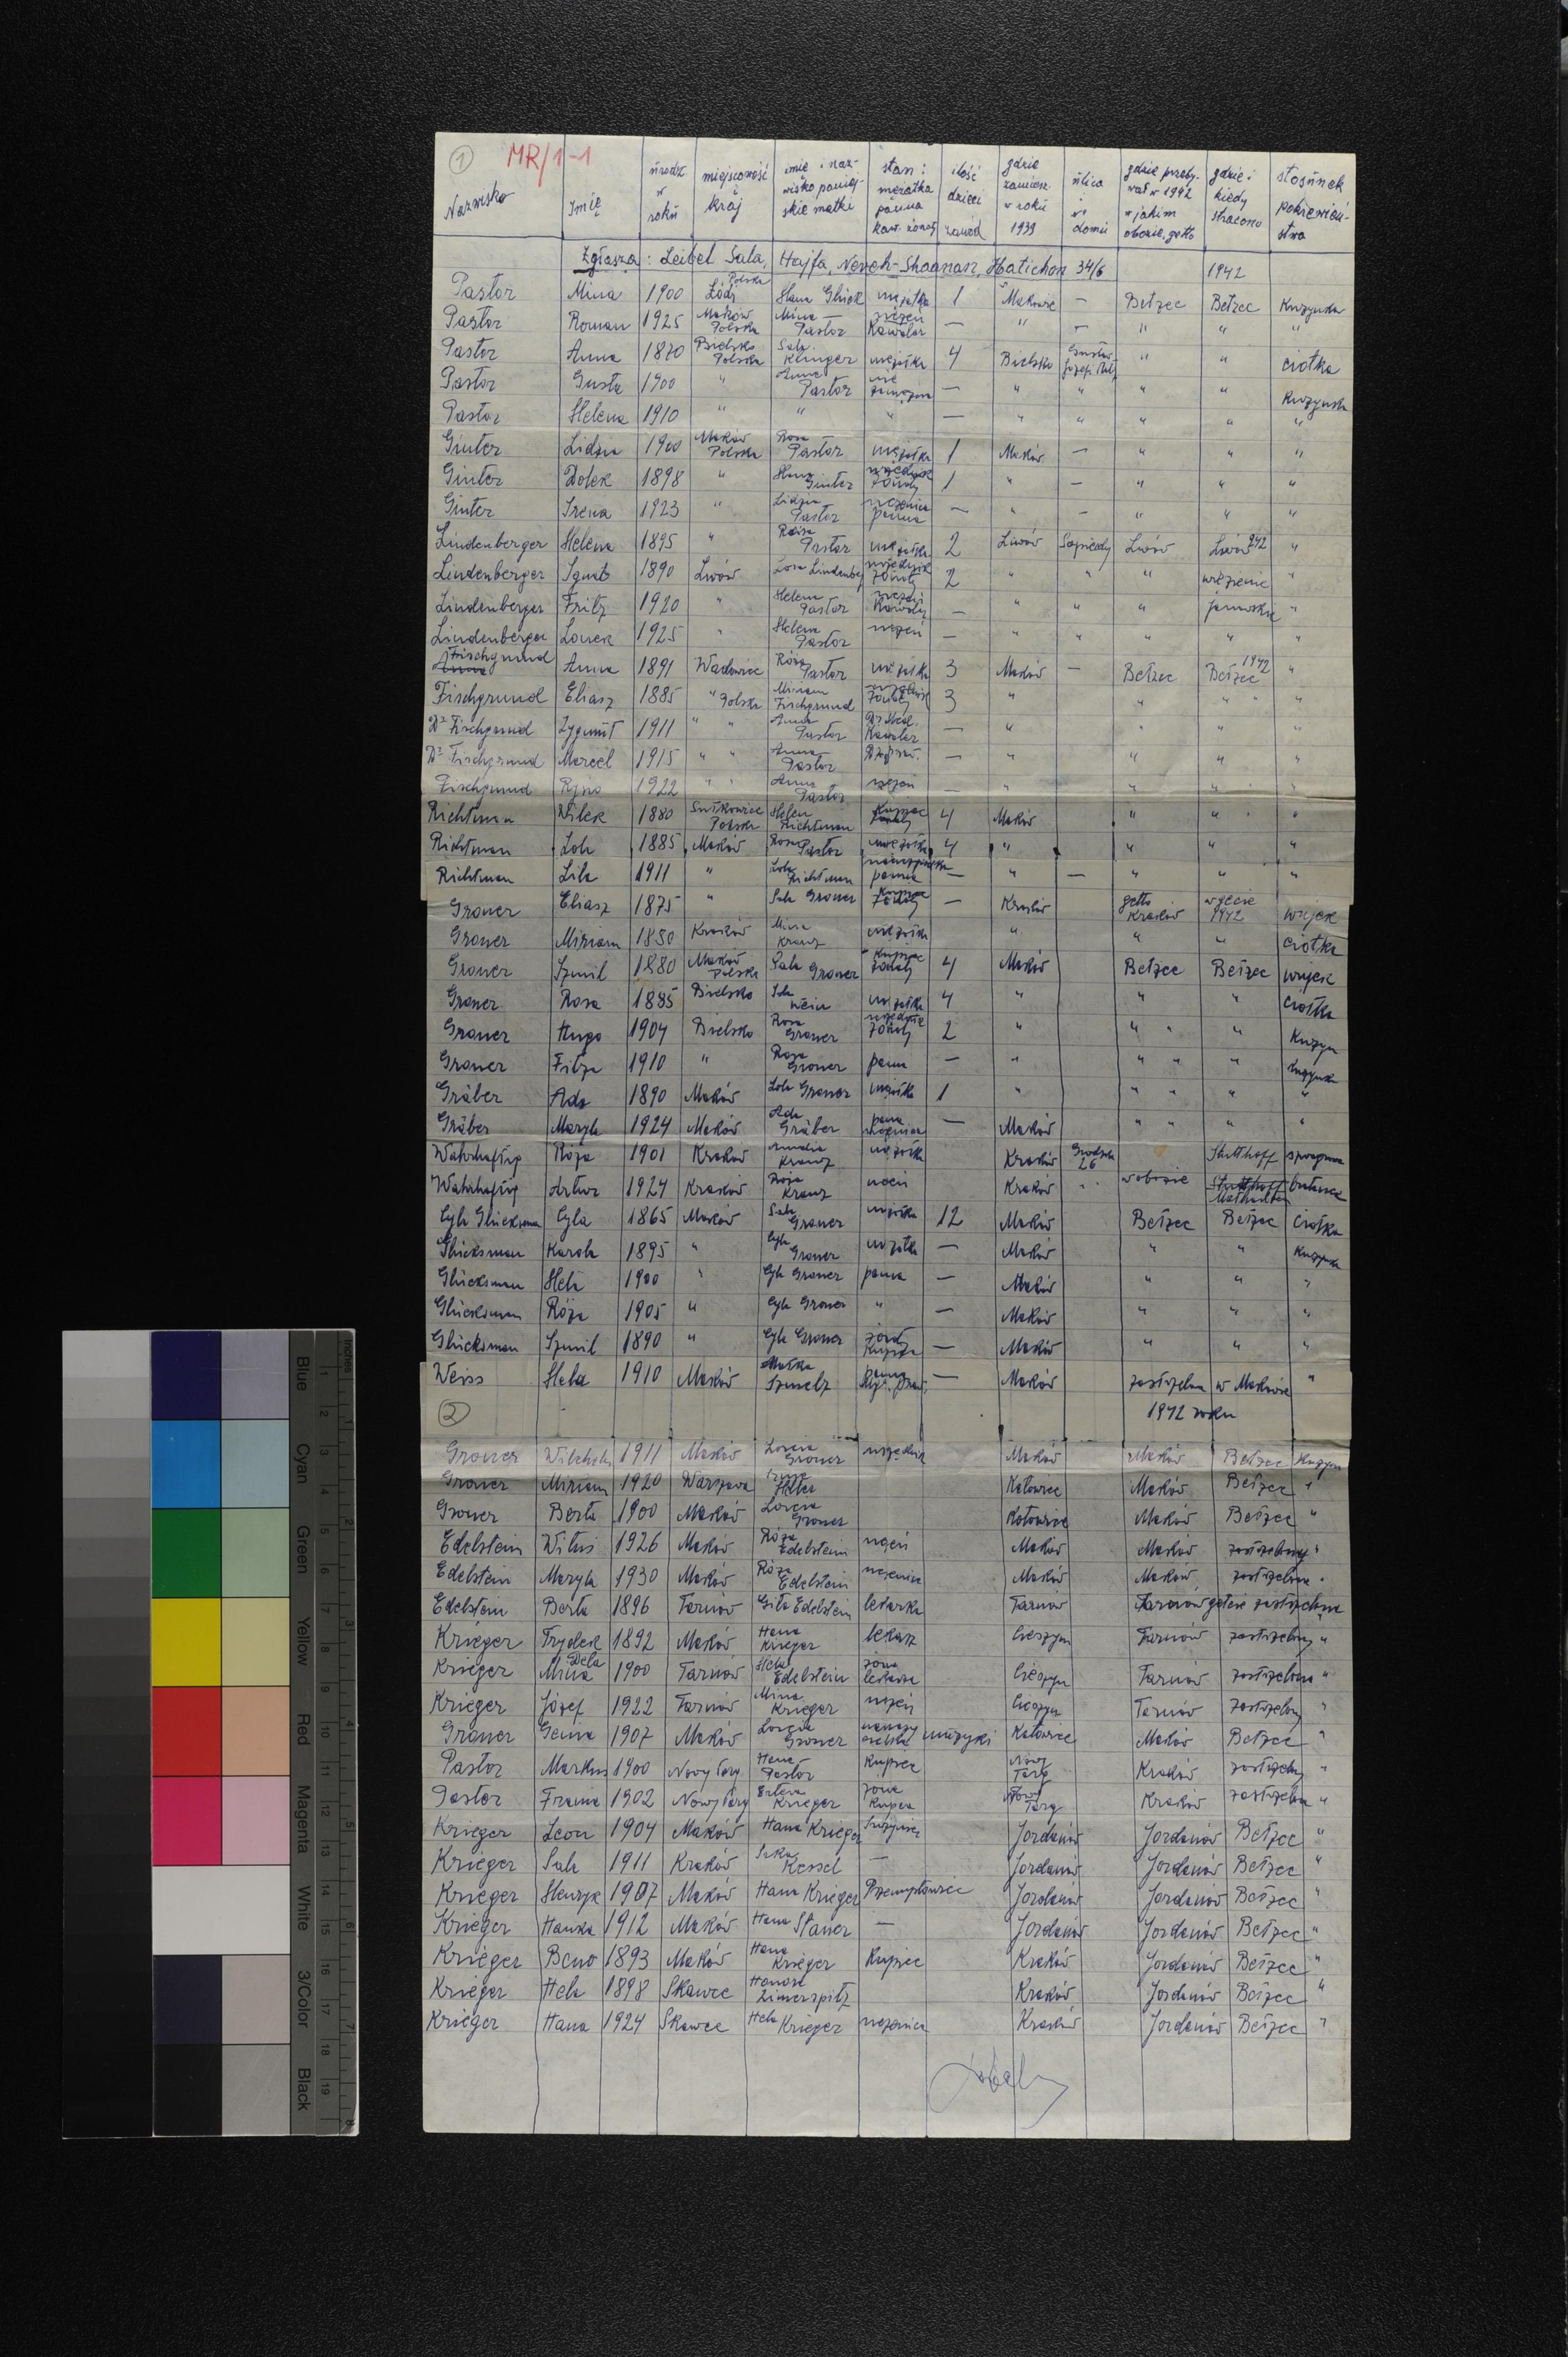 1 MR/1-1
Nazwisko Imię urodz w roku miejscowość i kraj imię i nazwisko panieńskie matki stan: mężatka panna kaw. żonaty ilość dzieci zawód gdzie zamiesz. w roku 1939 ulica nr domu gdzie przebywał w 1942 w jakim obozie, getto gdzie i kiedy stracono stosunek pokrewieństwa
Zgłasza: Leibel Sala, Hajfa, Neveh-Shaanan, Hatichon 34/6 1942
Pastor Mina 1900 Łódź Polska Hana Glück mężatka 1 Maków — Bełzec Bełzec Kuzynka
Pastor Roman 1925 Maków Polska Mina Pastor uczeń Kawaler — " — " " "
Pastor Anna 1870 Bielsko Polska Sala Klinger mężatka 4 Bielsko " " ciotka
Pastor Gusta 1900 " Anna Pastor nie zamężna — " " " " Kuzynka
Pastor Helena 1910 " " " — " " " " "
Ginter Lidzia 1900 Maków Polska Rosa Pastor mężatka 1 Maków — " " "
Ginter Dolek 1898 " Hana Ginter żonaty 1 " — " " "
Ginter Irena 1923 " Lidzia Pastor uczenica panna — " — " " "
Lindenberger Helena 1895 " Róża Pastor mężatka 2 Lwów Sapiechy Lwów Lwów 942 "
Lindenberger Ignatz 1890 Lwów Lindenberg żonaty 2 " " " więzienie "
Lindenberger Fritz 1920 " Helena Pastor uczeń Kawaler — " " " janowskie "
Lindenberger Lonek 1925 " Helena Pastor uczeń — " " " " "
Fischgrund Anna 1891 Wadowice Róża Pastor mężatka 3 Maków — Bełzec Bełzec 1942 "
Fischgrund Eliasz 1885 " Polska Miriam Fischgrund żonaty 3 " " " "
Dr Fischgrund Zygmunt 1911 " " Anna Pastor Kawaler — " " " "
Dr Fischgrund Marcel 1915 " " Anna Pastor — " " " "
Fischgrund 1922 " " Anna Pastor uczeń — " " " "
Richtman Wilek 1880 Sułkowice Polska Helen Richtman Kupiec żonaty 4 Maków " " "
Richtman Lola 1885 Maków Rosa Pastor mężatka 4 " " " "
Richtman Lila 1911 " Lola Richtman nauczycielka panna — " — " " "
Groner Eliasz 1875 " Sala Groner Kupiec żonaty — Kraków getto Kraków w getcie 1942 wujek
Groner Miriam 1880 Kraków Mina Kranz mężatka " " " ciotka
Groner Szmil 1880 Maków Polska Sala Groner Kupiec żonaty 4 Maków Bełzec Bełzec wujek
Groner Rosa 1885 Bielsko Wein mężatka 4 " " " ciotka
Groner Hugo 1904 Bielsko Rosa Groner żonaty 2 " " " Kuzyn
Groner Fitza 1910 " Rosa Groner panna — " " " kuzynka
Gräber Ada 1890 Maków Lola Groner mężatka 1 " " " "
Gräber Maryla 1924 Maków Ada Gräber panna uczenica — Maków " " "
Wahrhaftig Róża 1901 Kraków Amalia Kranz mężatka Kraków Grodzka 26 Stutthoff
Wahrhaftig Artur 1924 Kraków Róża Kranz uczeń Kraków " w obozie Stutthoff Mathausen
Cyla Glücksman Cyla 1865 Maków Sala Groner mężatka 12 Maków Bełzec Bełzec ciotka
Glücksman Karola 1895 " Cyla Groner mężatka — Maków " " kuzynka
Glücksman Hela 1900 " Cyla Groner panna — Maków " " "
Glücksman Róża 1905 " Cyla Groner " — Maków " " "
Glücksman Szmil 1890 " Cyla Groner żonaty Kupiec — Maków " " "
Weiss Hela 1910 Maków Matka Szmelz panna — Maków zastrzelona w Makowie "
1942 roku
2
Groner Wilhelm 1911 Maków Lorcia Groner urzędnik Maków Maków Bełzec Kuzyn
Groner Miriam 1920 Warszawa Katowice Maków Bełzec "
Groner Berta 1900 Maków Lorcia Groner Katowice Maków Bełzec "
Edelstein Wiluś 1926 Maków Róża Edelstein uczeń Maków Maków zastrzelony "
Edelstein Maryla 1930 Maków Róża Edelstein uczenica Maków Maków zastrzelona "
Edelstein Berta 1896 Tarnów Gita Edelstein lekarka Tarnów Tarnów getcie zastrzelona
Krieger Frydek 1892 Maków Hana Krieger lekarz Cieszyn Tarnów zastrzelony "
Krieger Mina Dela 1900 Tarnów Hela Edelstein żona lekarza Cieszyn Tarnów zastrzelona "
Krieger Józef 1922 Tarnów Mina Krieger uczeń Cieszyn Tarnów zastrzelony "
Groner Genia 1907 Maków Lorcia Groner nauczycielka muzyki Katowice Maków Bełzec "
Pastor Markus 1900 Nowy Targ Hana Pastor Kupiec Nowy Targ Kraków zastrzelony "
Pastor Frania 1902 Nowy Targ Estera Krieger żona Kupca Nowy Targ Kraków zastrzelona "
Krieger Leon 1904 Maków Hana Krieger Inżynier Jordanów Jordanów Bełzec "
Krieger Sala 1911 Kraków Kessel — Jordanów Jordanów Bełzec "
Krieger Henryk 1907 Maków Hana Krieger Przemysłowiec Jordanów Jordanów Bełzec "
Krieger Hanka 1912 Maków Hana Staner — Jordanów Jordanów Bełzec "
Krieger Beno 1893 Maków Hana Krieger Kupiec Kraków Jordanów Bełzec "
Krieger Hela 1898 Skawce Zimerspitz Kraków Jordanów Bełzec "
Krieger Hana 1924 Skawce Hela Krieger uczenica Kraków Jordanów Bełzec "
inches
Blue Cyan Green Yellow Red Magenta White 3/Color Black
1 2 3 4 5 6 7 8 9 10 11 12 13 14 15 16 17 18 19
1 2 3 4 5 6 7 8